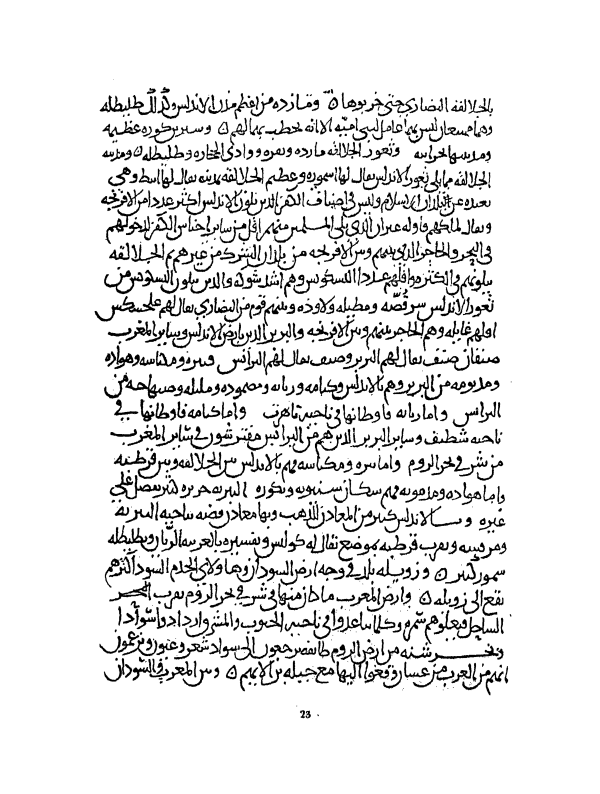 بالجلالقة النصارى حتى خربوها ○ وماردة من اعظم مدن الاندلس وكذلك طليطلة
وهما ليس بهما عامل لبني امية الا انه يخطب بهما لهم ○ وسنترين كورة عظيمة
ومدينتها وثغور الجلالقة ماردة ونفزة ووادي الحجارة وطليطلة ○ ومدينة
الجلالقة مما يلي ثغور الاندلس يقال لها سمورة وعظيم الجلالقة بمدينة يقال لها ابيط وهي
بعيدة عن بلدان الاسلام وليس في اصناف الكفر الذين يلون الاندلس اكثر عددا من الافرنجة
ويقال لملكهم قارله غير ان الذي يلي المسلمين منهم اقل من سائر اجناس الكفر لدخولهم
في البحر والحاجز الذي بينهم وبين الافرنجة من بلدان الشرك من غيرهم ثم الجلالقة
يلونهم في الكثرة واقلهم عددا البسكونس وهم اشد شوكة والذين يلون البسكونس من
ثغور الاندلس سرقسطة وتطيلة ولاردة وبينهم قوم من النصارى يقال لهم علجسكس
اقلهم غائلة وهم الحاجز بينهم وبين الافرنجة والبربر الذين بارض الاندلس وسائر المغرب
صنفان صنف يقال لهم البتر وصنف يقال لهم البرانس فنفزة ومكناسة وهوارة
ومديونة من البربر وهم بالاندلس وكتامة وزناتة ومصمودة ومليلة وصنهاجة من
البرانس واما زناتة فاوطانها في ناحية تاهرت واما كتامة فاوطانها في
ناحية سطيف وسائر البربر الذين هم من البرانس مفترشون في سائر المغرب
من شرقي بحر الروم واما نفزة ومكناسة فهم بالاندلس بين الجلالقة وبين قرطبة
واما هوارة ومديونة فهم سكان سنتبرية وبكورة البيرة حرير كثير يفضل على
غيره وبالاندلس كثير من المعادن للذهب وبها معادن فضة بناحية البيرة
ومرسية وبقرب قرطبة بموضع يقال له كولس وتفسيره بالعربية الريان وبطليطلة
سمور كثير ○ وزويلة بلد في وجه ارض السودان وها ولاي الخدم السود اكثرهم
يقع الى زويلة ○ وارض المغرب ما كان منها في شرقي بحر الروم بقرب
الساحل فيعلوهم سمرة وكلما تباعدوا في ناحية الجنوب والمشرق ازدادوا سوادا
من ارض الروم الى سواد شعر وعيون ويزعمون
انهم من العرب من غسان وقعوا اليها مع جبلة بن الايهم ○ وبين المغرب والسودان
23